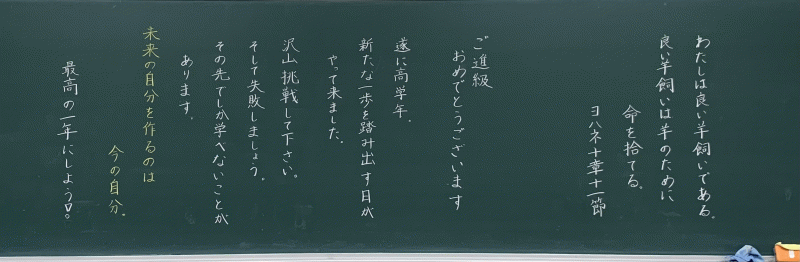 わたしは良い羊飼いである。
良い羊飼いは羊のために
命を捨てる。
ヨハネ十章十一節
ご進級
おめでとうございます
遂に高学年。
新たな一歩を踏み出す日が
やって来ました。
沢山挑戦して下さい。
そして失敗しましょう。
その先でしか学べないことが
あります。
未来の自分を作るのは
今の自分。
最高の一年にしよう!